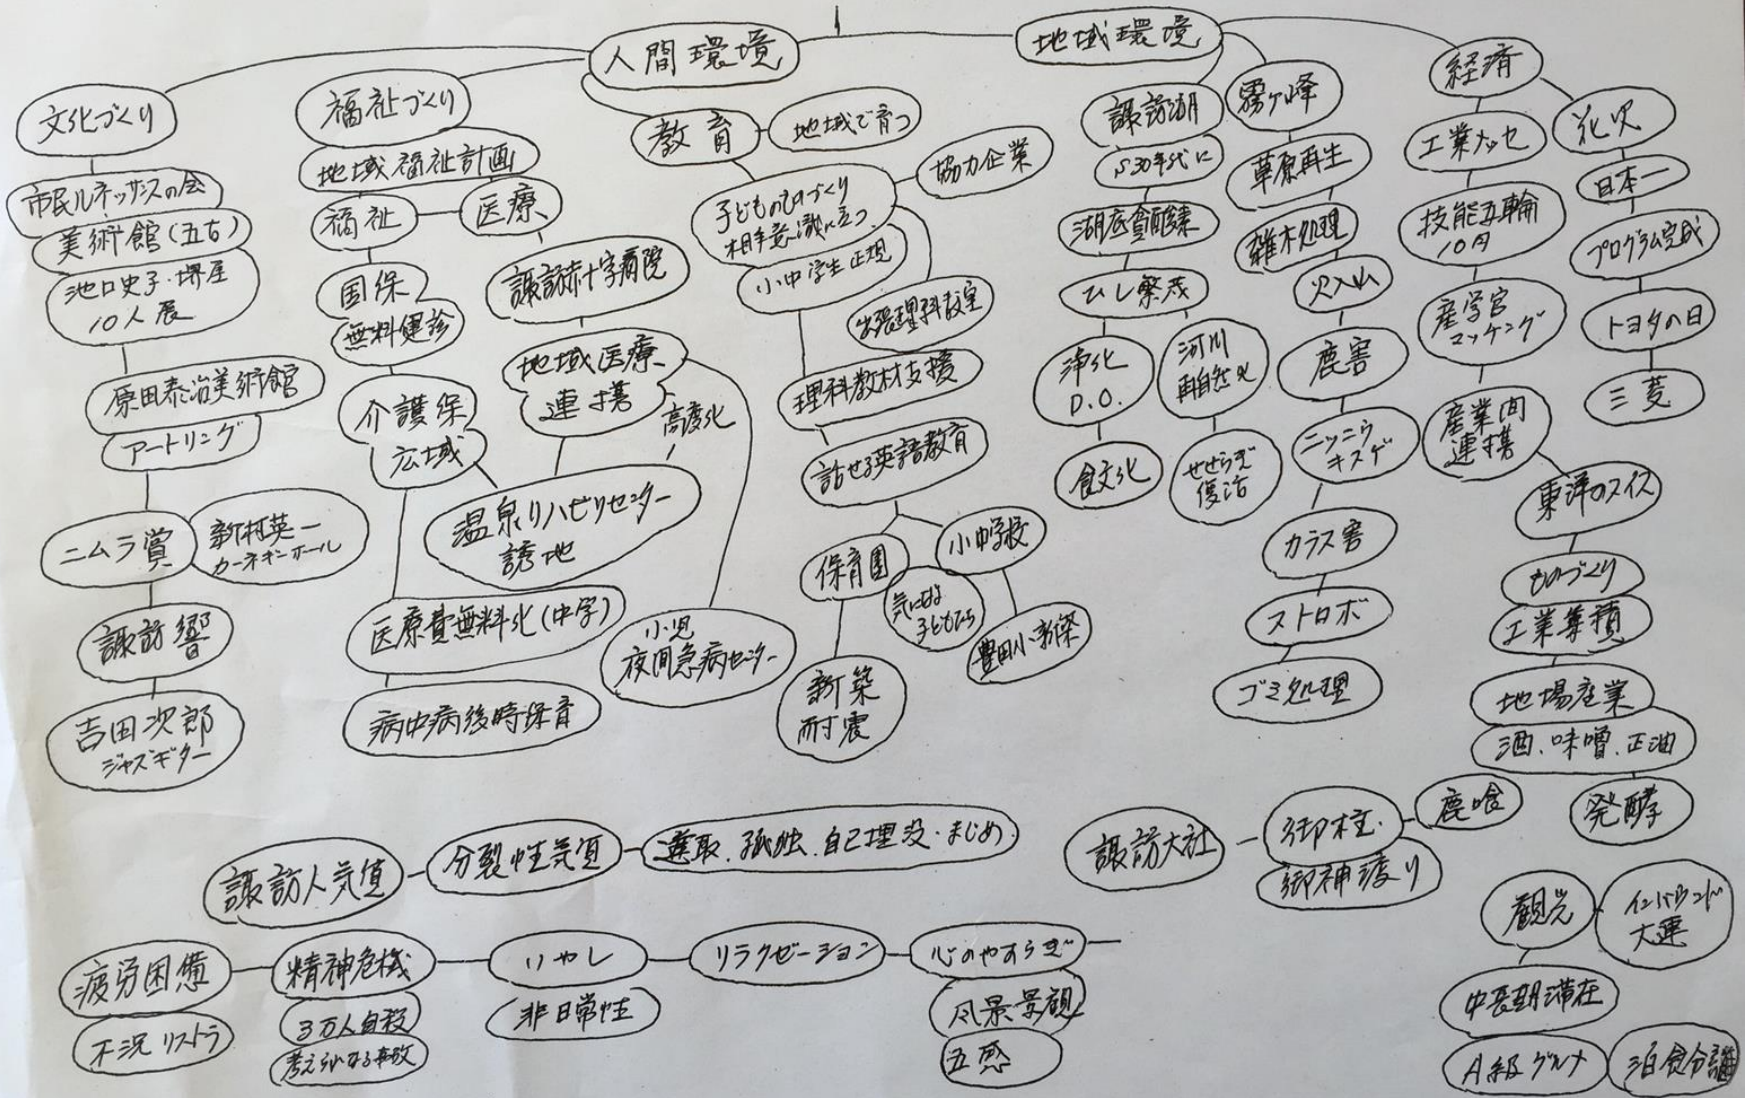 人間環境
地域環境
経済
文化づくり
市民ルネッサンスの会
美術館(五古)
池口史子・堺屋
10人展
原田泰治美術館
アートリング
ニムラ賞
新村英一
カーネギーホール
諏訪響
吉田次郎
ジャズギター
福祉づくり
地域福祉計画
福祉
医療
国保
無料健診
介護保
広域
諏訪赤十字病院
地域医療
連携
高度化
温泉リハビリセンター
誘地
医療費無料化(中学)
病中病後時保育
小児
夜間急病センター
教育
地域で育つ
協力企業
子どものものづくり
相手意識に立つ
小中学生正規
出張理科教室
理科教材支援
話せる英語教育
保育園
小中学校
気になる
子どもたち
新築
耐震
豊田小新築
諏訪湖
S30年代に
湖底貧酸素
ひし繁茂
浄化
D.O.
食文化
河川
再自然化
せせらぎ
復活
霧ヶ峰
草原再生
雑木処理
火入山
鹿害
ニッコウ
キスゲ
カラス害
ストロボ
ゴミ処理
工業メッセ
技能五輪
10月
産学官
マッチング
産業間
連携
東洋のスイス
ものづくり
工業集積
地場産業
酒、味噌、正油
発酵
日本一
プログラム完成
トヨタの日
三菱
諏訪人気質
分裂性気質
選取、孤独、自己埋没・まじめ
諏訪大社
御柱
御神渡り
鹿喰
観光
インバウンド
大連
中長期滞在
A級グルメ
泊食分離
疲労困憊
不況リストラ
精神危機
3万人自殺
考えられなる事故
いやし
非日常性
リラクゼーション
心のやすらぎ
風景景観
五感